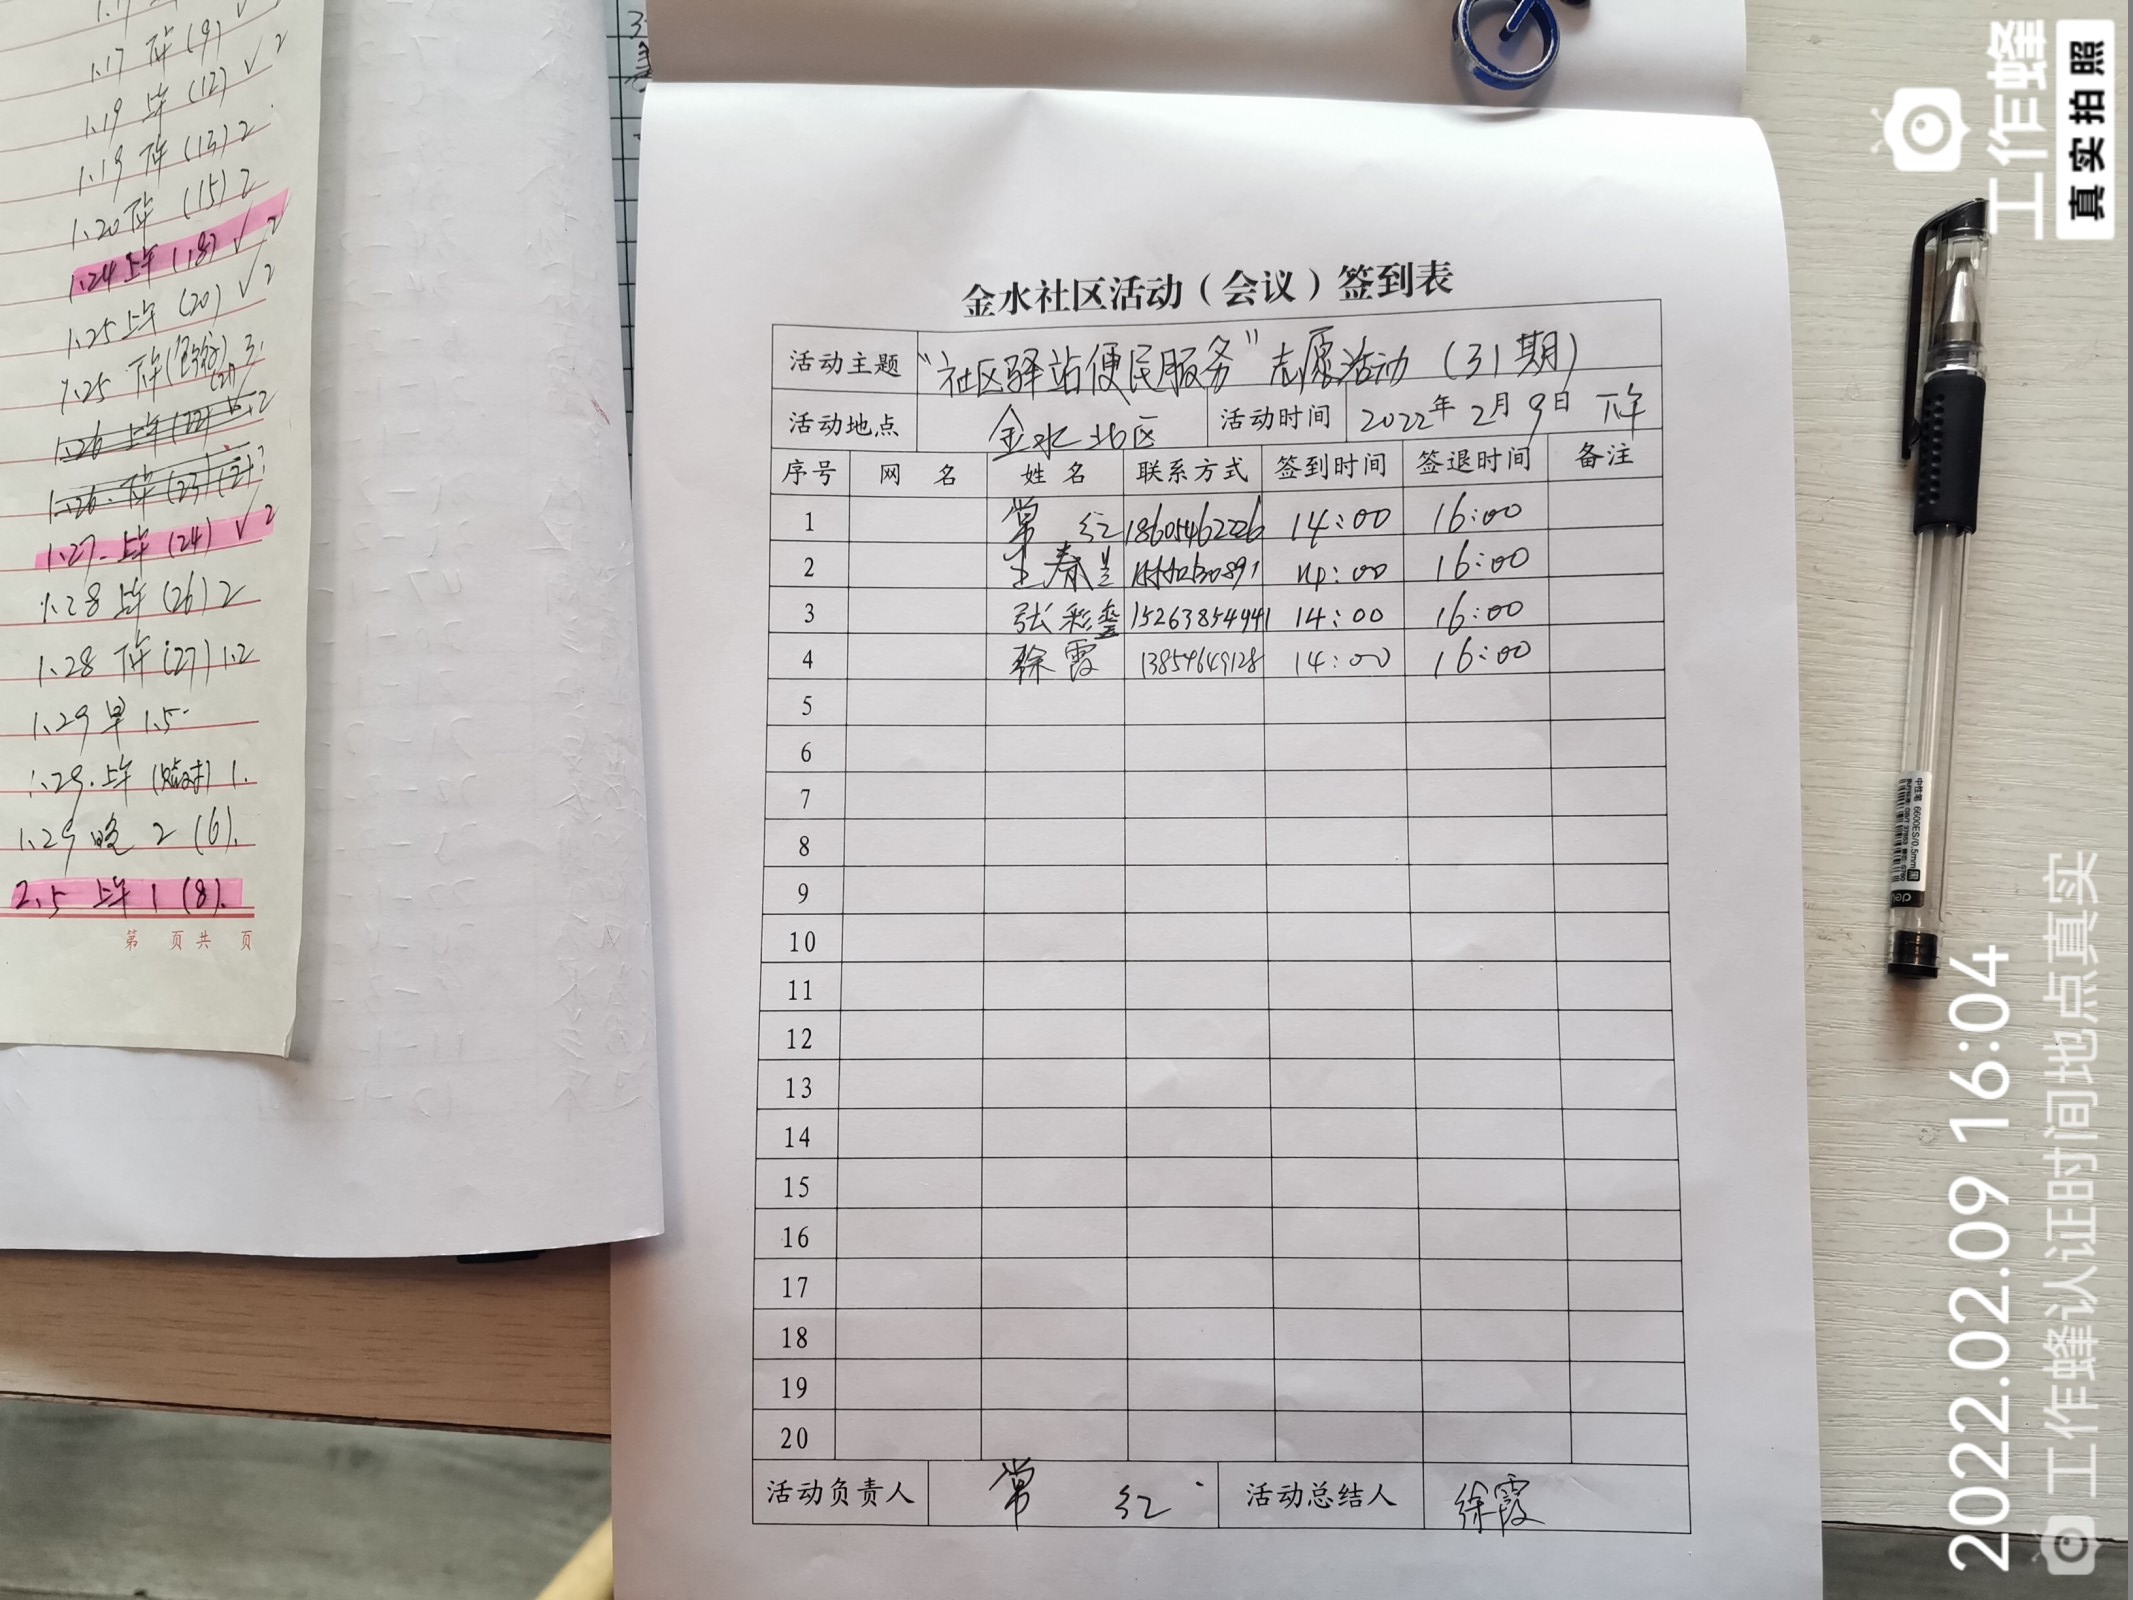 1.17 下午 (9) √ 2
1.19 上午 (12) √ 2
1.19 下午 (13) 2
1.20 下午 (15) 2
1.24 上午 (18) √ 2
1.25 上午 (20) √ 2
1.25 下午
1.26 上午 (22) √ 2
1.26 下午 (23)
1.27 上午 (24) √ 2
1.28 上午 (26) 2
1.28 下午 (27) 1.2
1.29 早 1.5
1.29 上午 1.
1.29 晚 2 (6).
2.5 上午 1 (8).
第 页 共 页
金水社区活动（会议）签到表
活动主题 “社区驿站便民服务”志愿活动（31期）
活动地点 金水北区 活动时间 2022年2月9日 下午
序号 网 名 姓 名 联系方式 签到时间 签退时间 备注
1 常 红 18605462226 14:00 16:00
2 王春兰 14:00 16:00
3 张彩 15263854941 14:00 16:00
4 徐霞 13854649128 14:00 16:00
5
6
7
8
9
10
11
12
13
14
15
16
17
18
19
20
活动负责人 常 红 活动总结人 徐霞
中性笔 6600ES/0.5mm 黑
工作蜂
真实拍照
2022.02.09 16:04
工作蜂认证时间地点真实